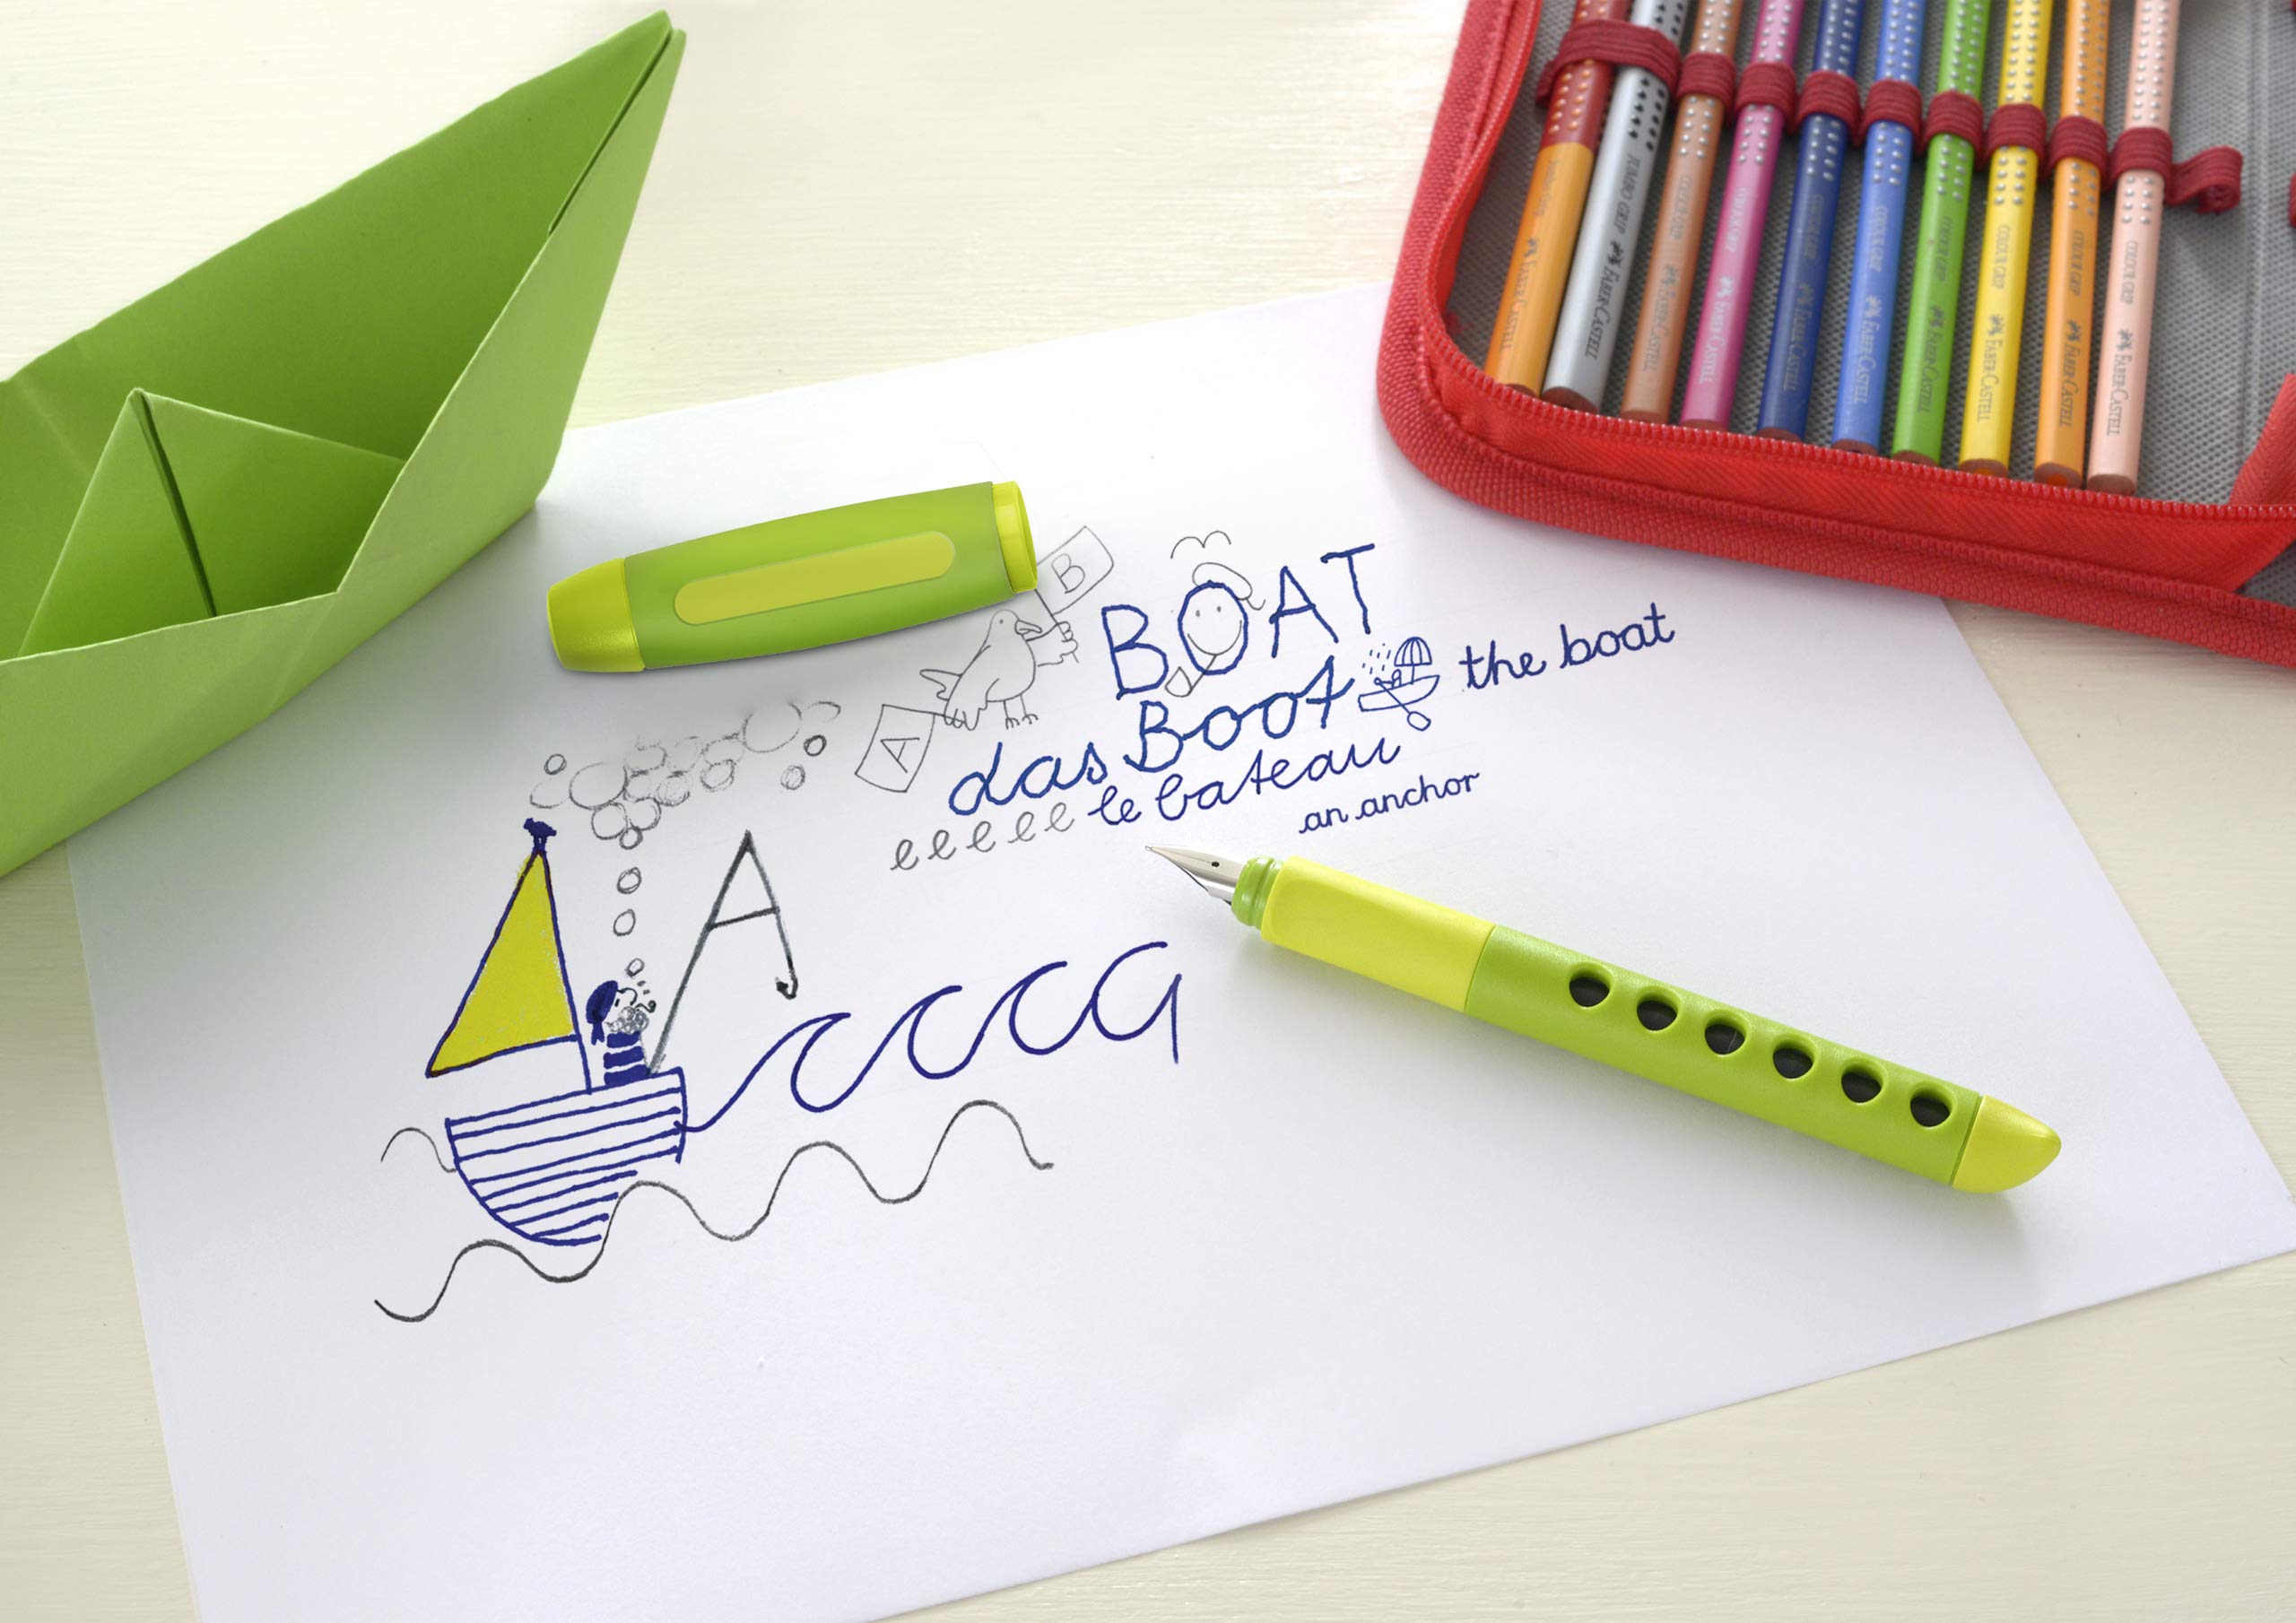 B
BOAT
the boat
das Boot
A
eeeee le bateau
an anchor
A
JUMBO GRIP FABER-CASTELL
COLOUR GRIP FABER-CASTELL
COLOUR GRIP FABER-CASTELL
COLOUR GRIP FABER-CASTELL
COLOUR GRIP FABER-CASTELL
COLOUR GRIP FABER-CASTELL
COLOUR GRIP FABER-CASTELL
COLOUR GRIP FABER-CASTELL
COLOUR GRIP FABER-CASTELL